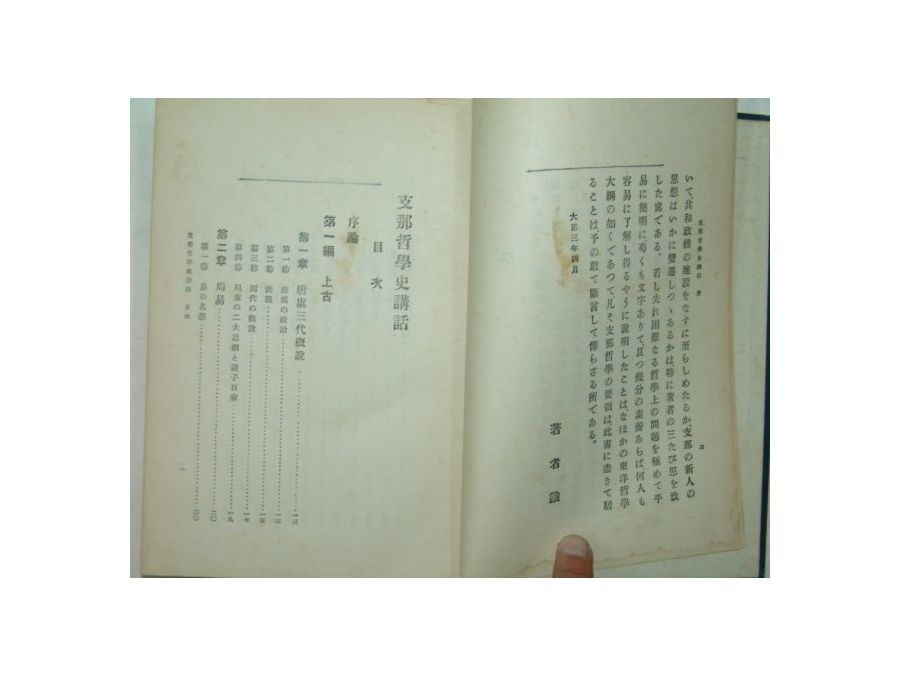 支那哲學史講話 序
二
いて、共和政體の建設をなすに至らしめたるか、支那の新人の
思想はいかに變遷しつゝあるかは、特に著者の三たび思を致
した處である。若し夫れ困難なる哲學上の問題を極めて平
易に簡明に、苟くも文字ありて、且つ幾分の素養あらば、何人も
容易に了解し得るやうに說明したことは、なほかの東洋哲學
大綱の如くであつて、凡そ支那哲學の要領は、此書に盡きて居
ることは予の敢て斷言して憚らざる所である。
大正三年四月
著者識
支那哲學史講話
目次
序論
第一編 上古
第一章 唐虞三代槪說
第一節 唐虞の政治
第二節 洪範
第三節 周代の槪說
第四節 周末の二大思潮と諸子百家
第二章 周易
第一節 易の名義
支那哲學史講話 目次
一